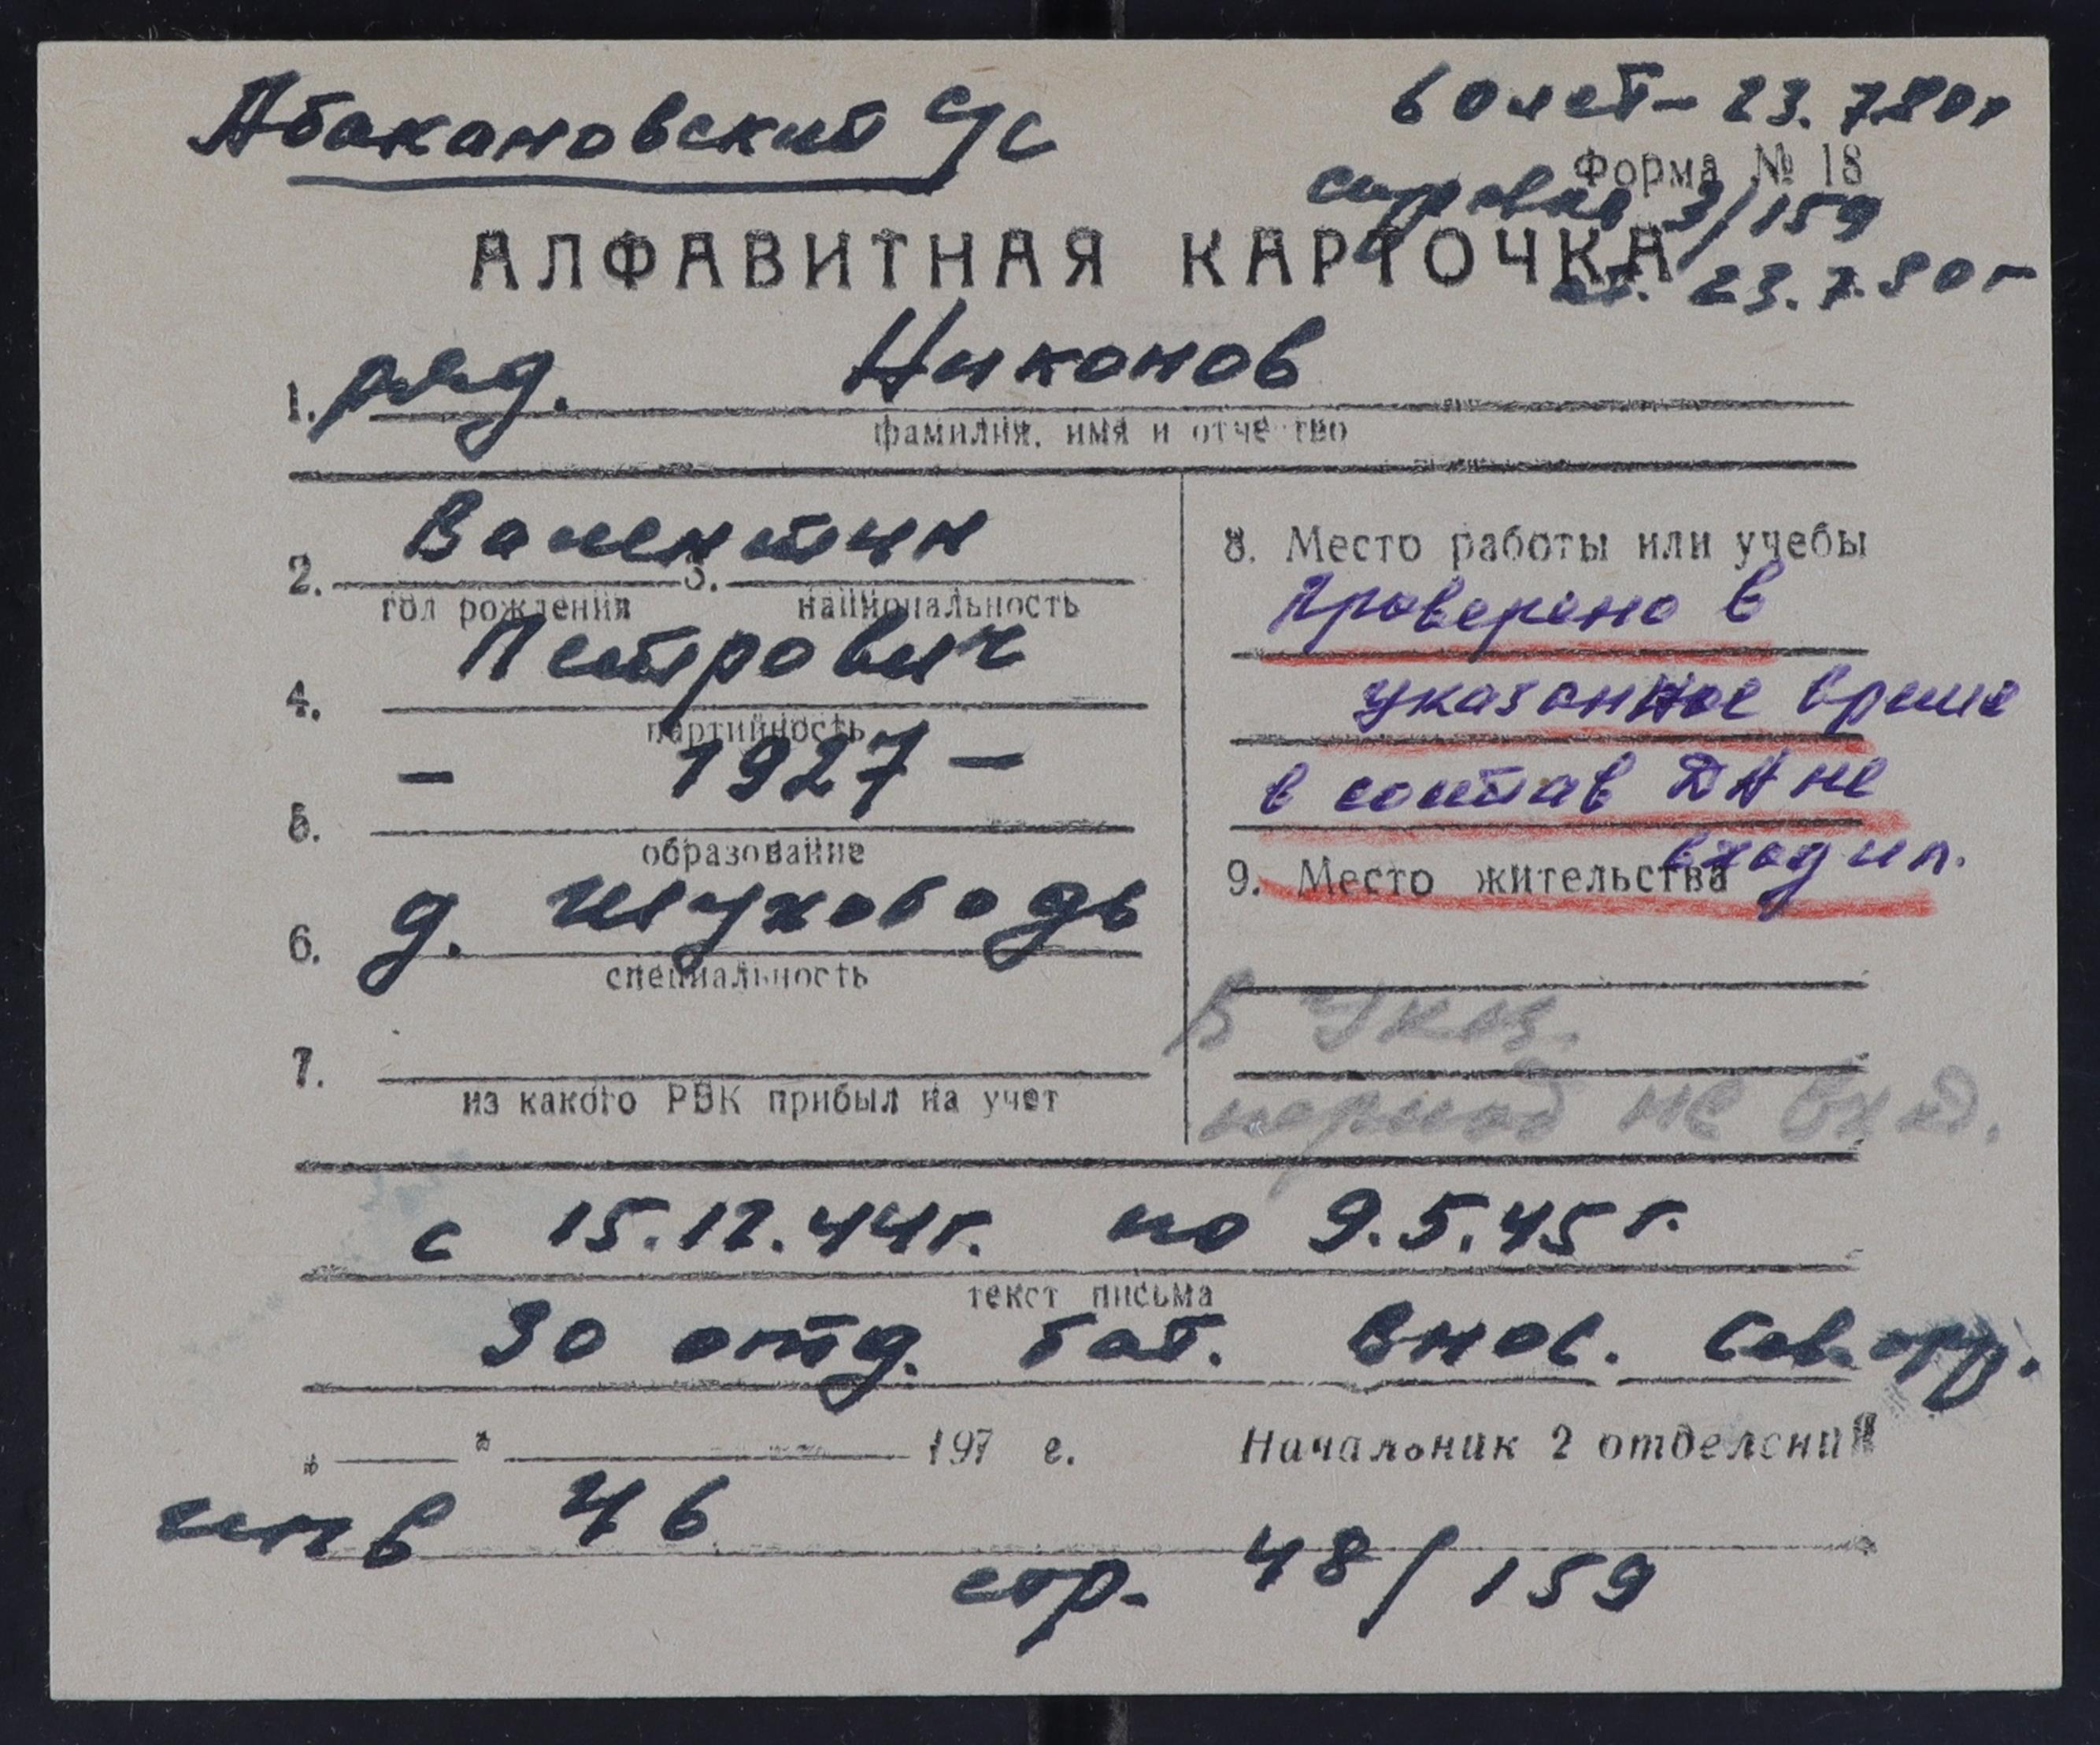 Абакановский с/с
60 лет - 23.7.80г
Форма № 18
справка 3/159
от. 23.7.80г
АЛФАВИТНАЯ КАРТОЧКА
1. ряд. Никонов
фамилия, имя и отчество
Валентин
2. 3.
год рождения национальность
Петрович
4.
партийность
- 1927 -
5.
образование
6. д. Шухободь
специальность
7.
из какого РВК прибыл на учет
8. Место работы или учебы
Проверено в
указанное время
в состав ДА не
входил.
9. Место жительства
В указ.
период не вход.
с 15.12.44г. по 9.5.45г.
текст письма
30 отд. бат. внос.
„ " 197 г. Начальник 2 отделения
инв 46
стр. 48/159